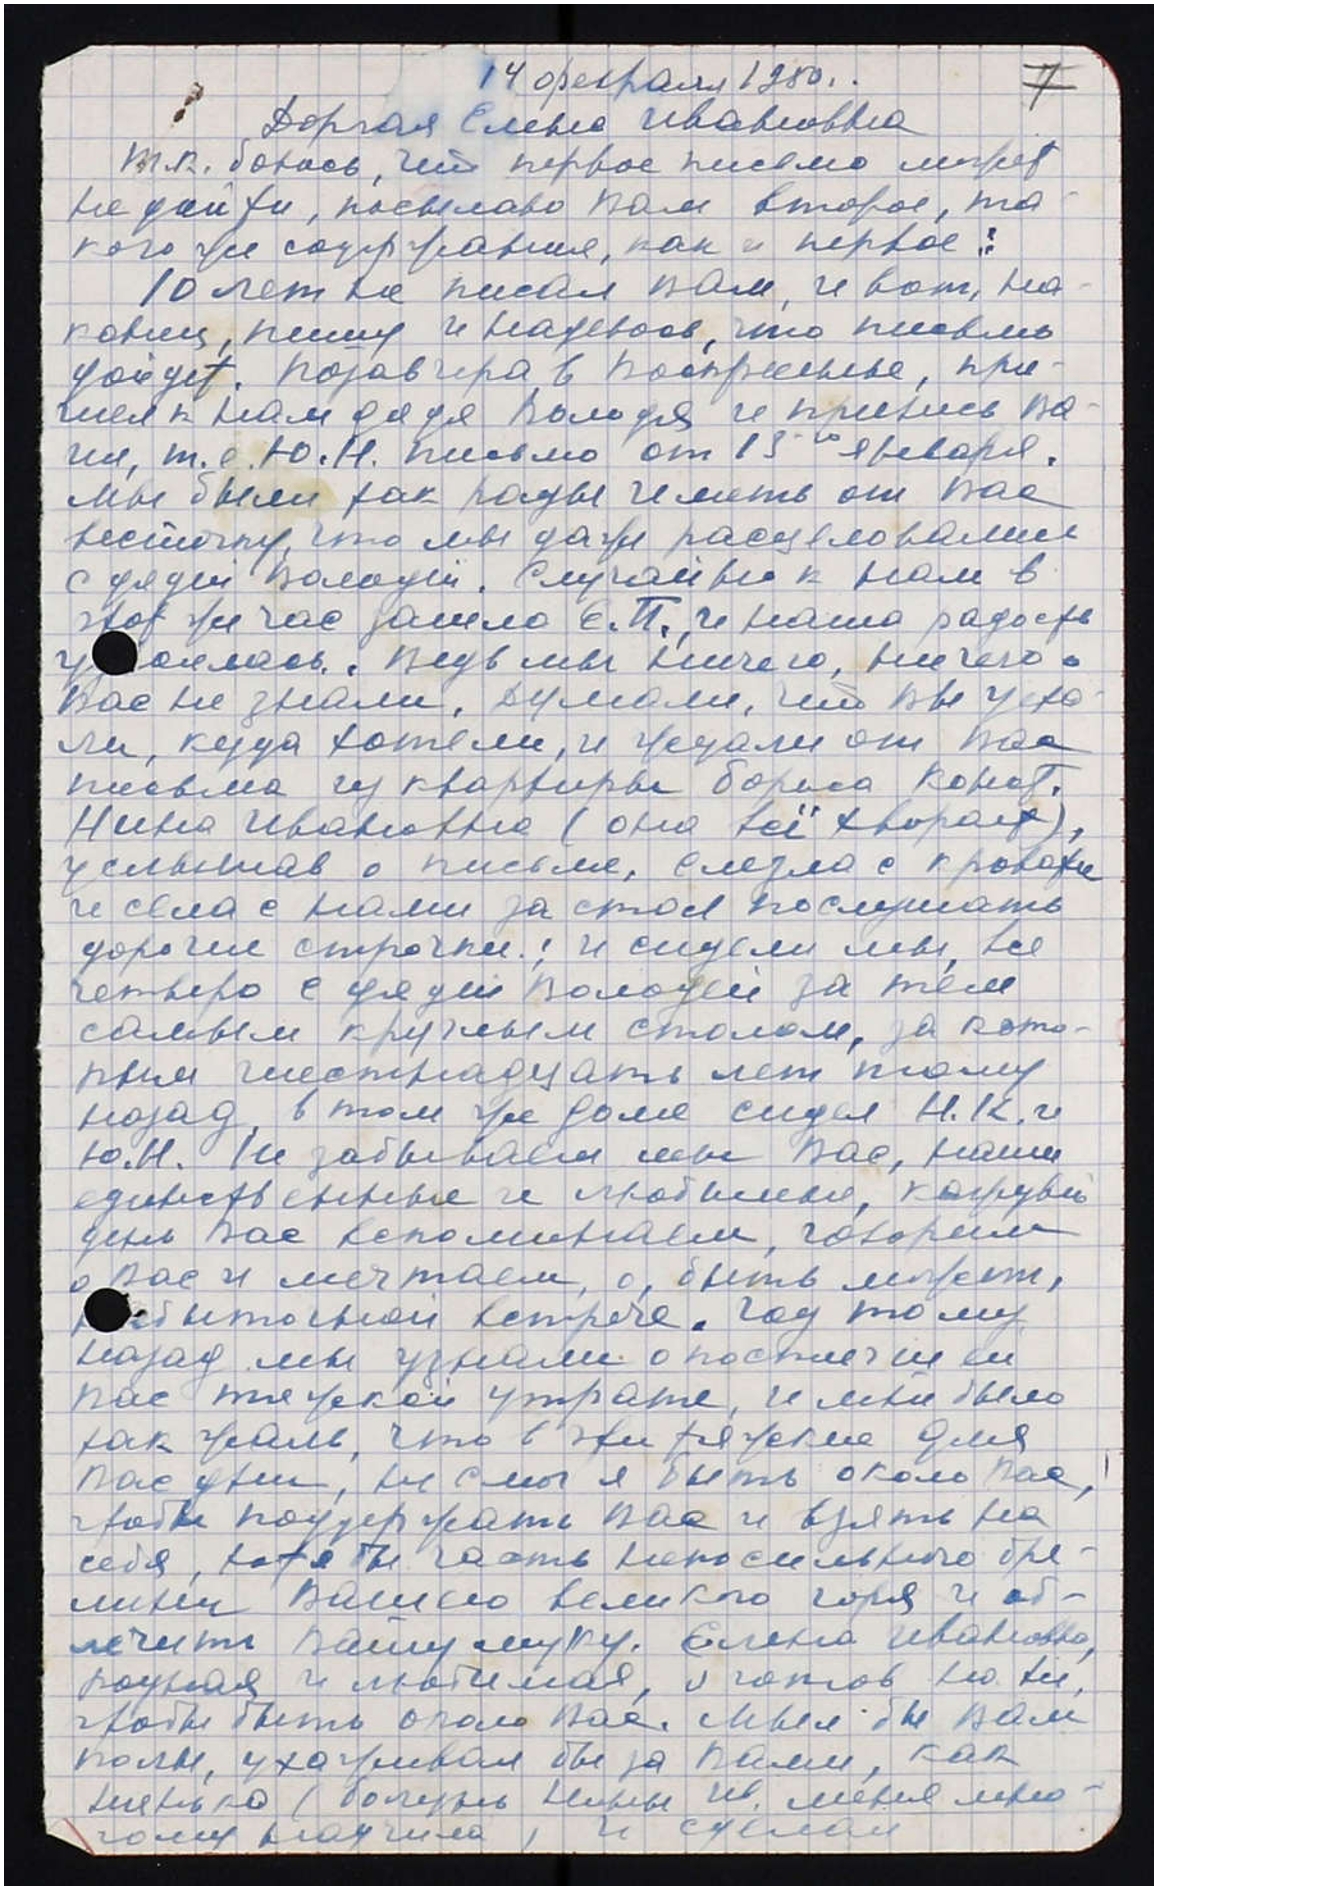 14 февраля 1950.
7
Дорогая Елена Ивановна
т.к. боюсь, что первое письмо может
не дойти, посылаю Вам второе, та-
кого же содержания, как и первое:
10 лет не писал Вам, и вот, на-
конец, пишу и надеюсь, что письмо
дойдет. Позавчера, в Воскресенье, при-
шел к нам дядя Володя и принес Ва-
ше, т.е. Ю.Н. письмо от 15го января.
Мы были так рады иметь от Вас
весточку, что мы даже расцеловались
с дядей Володей. Случайно к нам в
этот же час зашла Е.П., и наша радость
удвоилась. Ведь мы ничего, ничего о
Вас не знали. Думали, что Вы уеха-
ли, куда хотели, и ждали от Вас
письма из квартиры Бориса Конст.
Нина Ивановна (она всё хворает),
услышав о письме, слезла с кровати
и села с нами за стол послушать
дорогие строчки.; и сидели мы, все
четверо с дядей Володей за тем
самым круглым столом, за кото-
рым шестнадцать лет тому
назад, в том же доме сидел Н.К. и
Ю.Н. Не забываем мы Вас, наши
единственные и любимые, каждый
день Вас вспоминаем, говорим
о Вас и мечтаем, о, быть может,
несбыточной встрече. Год тому
назад мы узнали о постигшей
Вас тяжкой утрате, и мне было
так жаль, что в эти тяжкие для
Вас дни, не смог я быть около Вас,
чтобы поддержать Вас и взять на
себя, хотя бы часть непосильного бре-
мени Вашего великого горя и об-
легчить Вашу муку. Елена Ивановна,
родная и любимая, я готов на всё,
чтобы быть около Вас. Мыл бы Вам
полы, ухаживал бы за Вами, как
нянька (болезнь Нины Ив. меня мно-
гому научила), и сделал